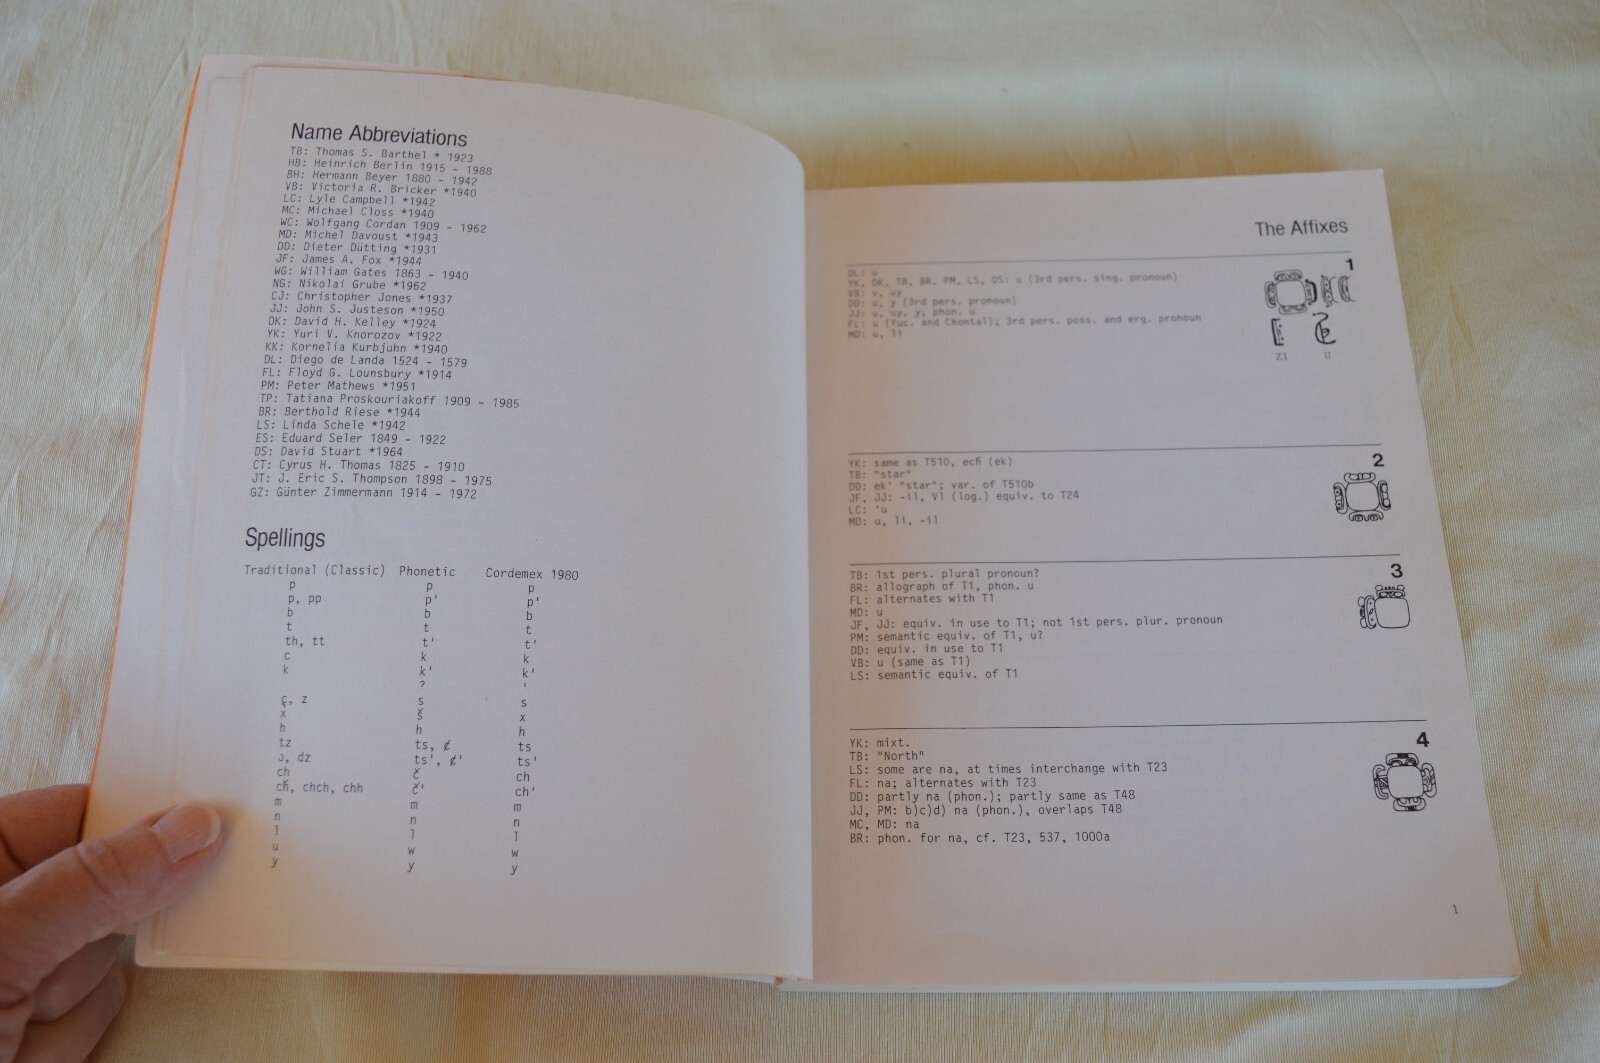 Name Abbreviations
TB: Thomas S. Barthel * 1923
HB: Heinrich Berlin 1915 - 1988
BH: Hermann Beyer 1880 - 1942
VB: Victoria R. Bricker *1940
LC: Lyle Campbell *1942
MC: Michael Closs *1940
WC: Wolfgang Cordan 1909 - 1962
MD: Michel Davoust *1943
DD: Dieter Dütting *1931
JF: James A. Fox *1944
WG: William Gates 1863 - 1940
NG: Nikolai Grube *1962
CJ: Christopher Jones *1937
JJ: John S. Justeson *1950
DK: David H. Kelley *1924
YK: Yuri V. Knorozov *1922
KK: Kornelia Kurbjuhn *1940
DL: Diego de Landa 1524 - 1579
FL: Floyd G. Lounsbury *1914
PM: Peter Mathews *1951
TP: Tatiana Proskouriakoff 1909 - 1985
BR: Berthold Riese *1944
LS: Linda Schele *1942
ES: Eduard Seler 1849 - 1922
DS: David Stuart *1964
CT: Cyrus H. Thomas 1825 - 1910
JT: J. Eric S. Thompson 1898 - 1975
GZ: Günter Zimmermann 1914 - 1972
Spellings
Traditional (Classic) Phonetic Cordemex 1980
p p p
p, pp p' p'
b b b
t t t
th, tt t' t'
c k k
k k' k'
? '
ç, z s s
x š x
h h h
tz ts, ¢ ts
ɔ, dz ts', ¢' ts'
ch č ch
cħ, chch, chh č' ch'
m m m
n n n
l l l
u w w
y y y
The Affixes
1
DL: u
YK, DK, TB, BR, PM, LS, DS: u (3rd pers. sing. pronoun)
VB: u, uy
DD: u, y (3rd pers. pronoun)
JJ: u, uy, y; phon. u
FL: u (Yuc. and Chontal); 3rd pers. poss. and erg. pronoun
MD: u, li
Z1 U
2
YK: same as T510, ecñ (ek)
TB: "star"
DD: ek' "star"; var. of T510b
JF, JJ: -il, Vl (log.) equiv. to T24
LC: 'u
MD: u, li, -il
3
TB: 1st pers. plural pronoun?
BR: allograph of T1, phon. u
FL: alternates with T1
MD: u
JF, JJ: equiv. in use to T1; not 1st pers. plur. pronoun
PM: semantic equiv. of T1, u?
DD: equiv. in use to T1
VB: u (same as T1)
LS: semantic equiv. of T1
4
YK: mixt.
TB: "North"
LS: some are na, at times interchange with T23
FL: na; alternates with T23
DD: partly na (phon.); partly same as T48
JJ, PM: b)c)d) na (phon.), overlaps T48
MC, MD: na
BR: phon. for na, cf. T23, 537, 1000a
1